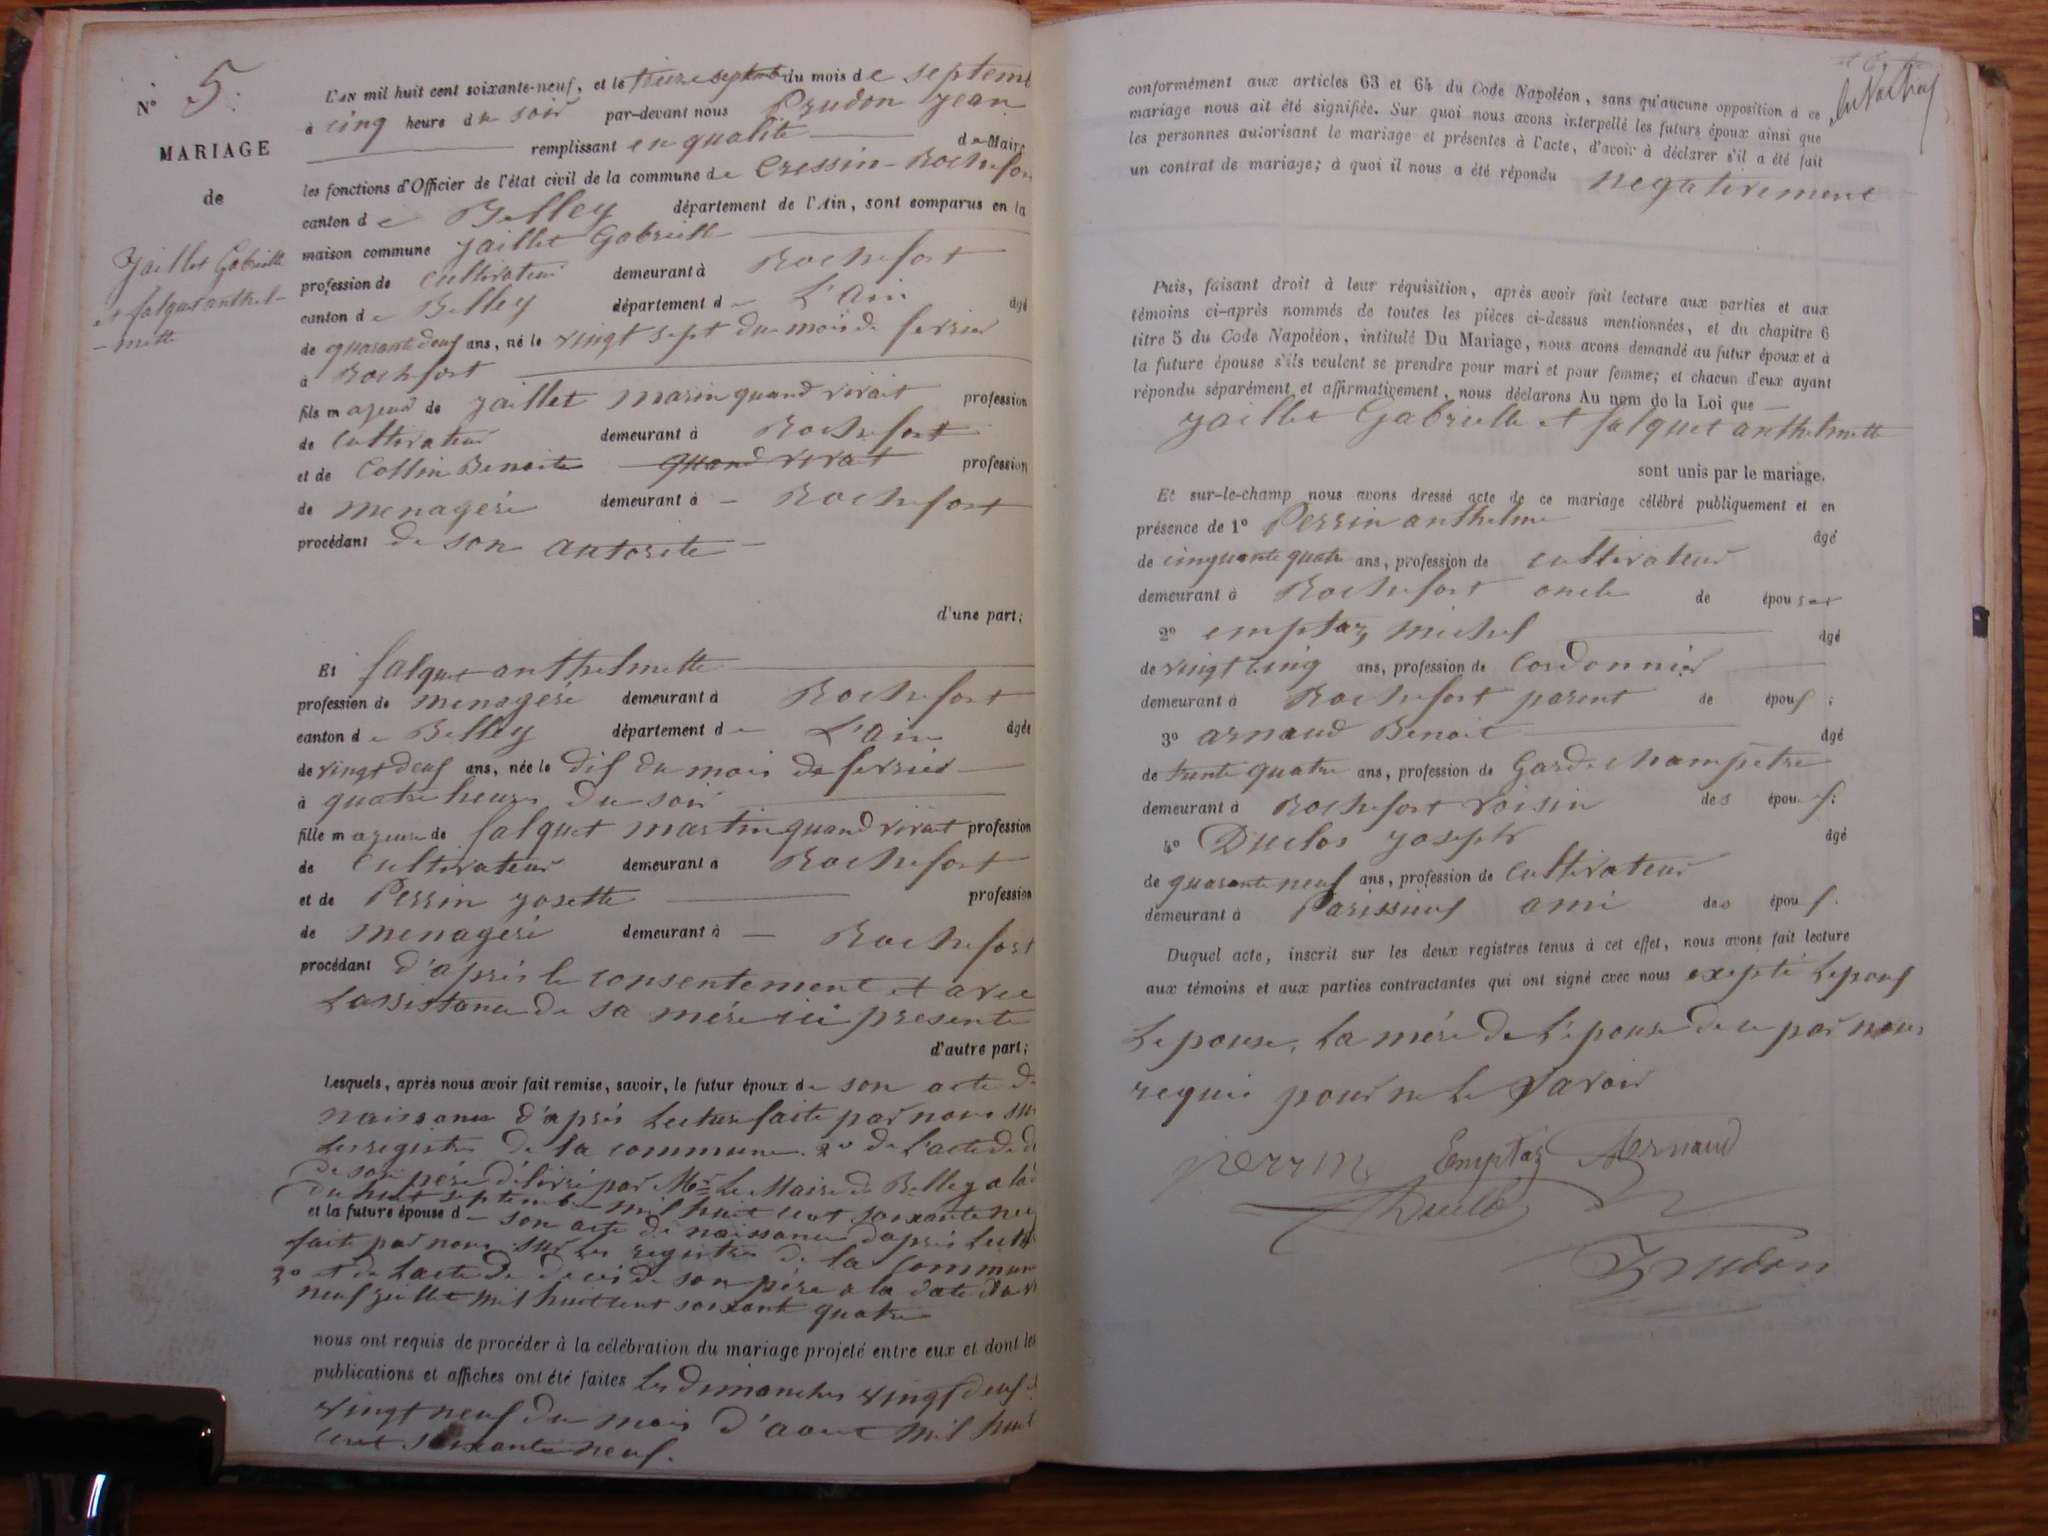 N° 5.
MARIAGE
de
Jaillet Gabrielle
et falquet anthel-
-mette
L'AN mil huit cent soixante-neuf, et le treize septemb du mois de septemb
à cinq heure du soir par-devant nous Prudon Jean
remplissant en qualité de Maire
les fonctions d'Officier de l'état civil de la commune de Cressin-Rochefor
canton de Belley département de l'Ain, sont comparus en la
maison commune Jaillet Gabrielle
profession de cultivateur demeurant à Rochefort
canton de Belley département de L'Ain âgé
de quarante deuf ans, né le vingt sept du mois de fevrier
à Rochefort
fils majeur de Jaillet marin quand vivait profession
de cultivateur demeurant à Rochefort
et de Collin Benoite quand vivait profession
de menagère demeurant à - Rochefort
procédant de son autorite -
d'une part;
Et falquet anthelmette
profession de menagère demeurant à Rochefort
canton de Belley département de L'Ain âgée
de vingt deuf ans, née le dif du mois de fevrier
à quatre heures du soir
fille majeure de falquet martin quand vivait profession
de Cultivateur demeurant à Rochefort
et de Perrin Josette profession
de menagère demeurant à - Rochefort
procédant d'après le consentement et avec
Lassistance de sa mère ici presente
d'autre part;
Lesquels, après nous avoir fait remise, savoir, le futur époux de son acte de
naissance d'après Lecture faite par nous sur
Les registre de la commune. 2° de l'acte de d
de son père délivré par Mr Le Maire de Belley a la d
du huit septembre mil huit cent soixante neu
et la future épouse de son acte de naissance dapres Lectu
faite par nous sur les registre de la commun
3° et de Lacte de deces de son père a la date du v
neuf juillet mil huit cent soixante quatre
nous ont requis de procéder à la célébration du mariage projeté entre eux et dont les
publications et affiches ont été faites les dimanches vingt deuf e
vingt neuf du mois d'aout mil huit
cent soixante neuf.
conformément aux articles 63 et 64 du Code Napoléon, sans qu'aucune opposition à ce
mariage nous ait été signifiée. Sur quoi nous avons interpellé les futurs époux ainsi que
les personnes autorisant le mariage et présentes à l'acte, d'avoir à déclarer s'il a été fait
un contrat de mariage; à quoi il nous a été répondu negativement
Puis, faisant droit à leur réquisition, après avoir fait lecture aux parties et aux
témoins ci-après nommés de toutes les pièces ci-dessus mentionnées, et du chapitre 6
titre 5 du Code Napoléon, intitulé Du Mariage, nous avons demandé au futur époux et à
la future épouse s'ils veulent se prendre pour mari et pour femme; et chacun d'eux ayant
répondu séparément et affirmativement, nous déclarons Au nom de la Loi que
Jaillet Gabrielle et falquet anthelmette
sont unis par le mariage.
Et sur-le-champ nous avons dressé acte de ce mariage célébré publiquement et en
présence de 1° Perrin anthelme âgé
de cinquante quatre ans, profession de cultivateur
demeurant à Rochefort oncle de épouse
2° emptaz michel âgé
de vingt cinq ans, profession de Cordonnier
demeurant à Rochefort parent de épouf;
3° arnaud Benoit âgé
de trente quatre ans, profession de Garde champetre
demeurant à Rochefort voisin des épouf;
4° Duclos Joseph âgé
de quarante neuf ans, profession de Cultivateur
demeurant à Parissieuf ami des épouf.
Duquel acte, inscrit sur les deux registres tenus à cet effet, nous avons fait lecture
aux témoins et aux parties contractantes qui ont signé avec nous exepté Lepouf
Lepouse, La mère de L'épouse de ce par nous
requis pour ne Le savoir
perrin Emptaz Arnaud
Duclo
Prudon